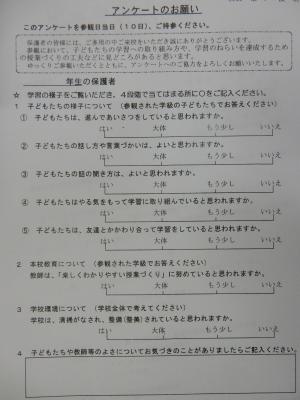 アンケートのお願い
このアンケートを参観日当日（１０日）、ご持参ください。
保護者の皆様には、ご多用の中ご来校をいただき誠にありがとうございます。
参観において、子どもたちの学習への取り組み方や、学習のねらいを達成するため
の授業づくりの工夫などに見どころがあると思います。
ゆっくりご参観いただくとともに、アンケートへのご協力をよろしくお願いいたします。
年生の保護者
☆ 学習の様子をご覧いただき、４段階で当てはまる所に○をご記入ください。
１ 子どもたちの様子について （参観された学級の子どもたちでお答えください）
① 子どもたちは、進んであいさつをしていると思われますか。
はい 大体 もう少し いいえ
② 子どもたちの話し方や言葉づかいは、よいと思われますか。
はい 大体 もう少し いいえ
③ 子どもたちの話の聞き方は、よいと思われますか。
はい 大体 もう少し いいえ
④ 子どもたちはやる気をもって学習に取り組んでいると思われますか。
はい 大体 もう少し いいえ
⑤ 子どもたちは、友達とかかわり合って学習をしていると思われますか。
はい 大体 もう少し いいえ
２ 本校教育について （参観された学級でお答えください）
教師は、「楽しくわかりやすい授業づくり」に努めていると思われますか。
はい 大体 もう少し いいえ
３ 学校環境について （学校全体で考えてください）
学校は、清掃がなされ、整備（整美）されていると思われますか。
はい 大体 もう少し いいえ
４ 子どもたちや教師等のよさについてお気づきのことがありましたらご記入ください。